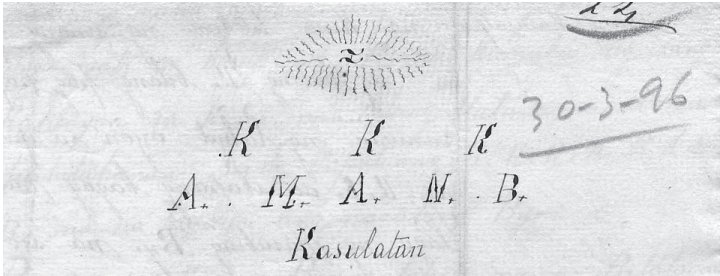 Z
30-3-96
K K K
A. M. A. N. B.
Kasulatan